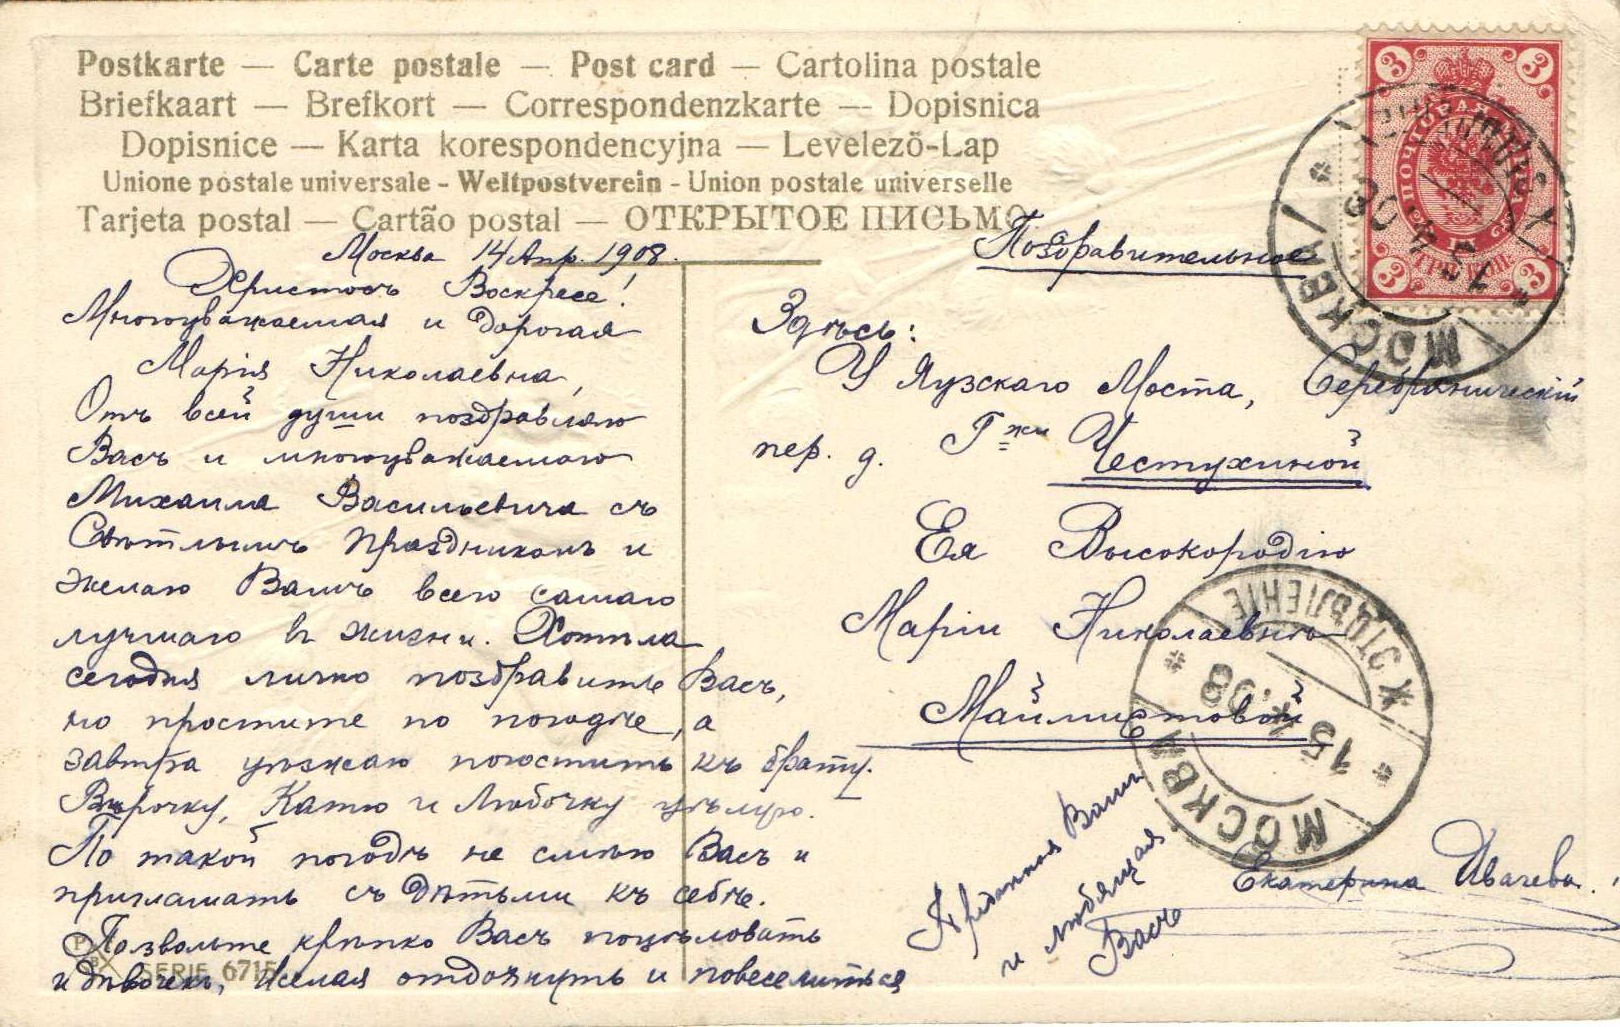 Postkarte — Carte postale — Post card — Cartolina postale
Briefkaart — Brefkort — Correspondenzkarte — Dopisnica
Dopisnice — Karta korespondencyjna — Levelező-Lap
Unione postale universale - Weltpostverein - Union postale universelle
Tarjeta postal — Cartão postal — ОТКРЫТОЕ ПИСЬМО
Москва 14 Апр. 1908.
Христосъ Воскресе!
Многоуважаемая и дорогая
Марія Николаевна,
Отъ всей души поздравляю
Васъ и многоуважаемаго
Михаила Васильевича съ
Свѣтлымъ праздникомъ и
желаю Вамъ всего самаго
лучшаго въ жизни. Хотѣла
сегодня лично поздравить Васъ,
но простите по погодѣ, а
завтра уѣзжаю погостить къ брату.
Вѣрочку, Катю и Любочку цѣлую.
По такой погодѣ не смѣю Васъ и
приглашать съ дѣтьми къ себѣ.
Позвольте крѣпко Васъ поцѣловать
и дѣвочекъ, желая отдохнуть и повеселиться
SERIE 6715
Поздравительное
Здѣсь:
У Яузскаго Моста, Серебряническій
пер. д. Г=жи Честухиной
Ея Высокородію
Маріи Николаевнѣ
Маймистовой
Преданная Вамъ
и любящая
Васъ
Екатерина Ивачева.
3 3
ПОЧТОВАЯ МАРКА
3 3
МОСКВА
15 4 08
МОСКВА
15 08
ОТДѢЛЕНІЕ